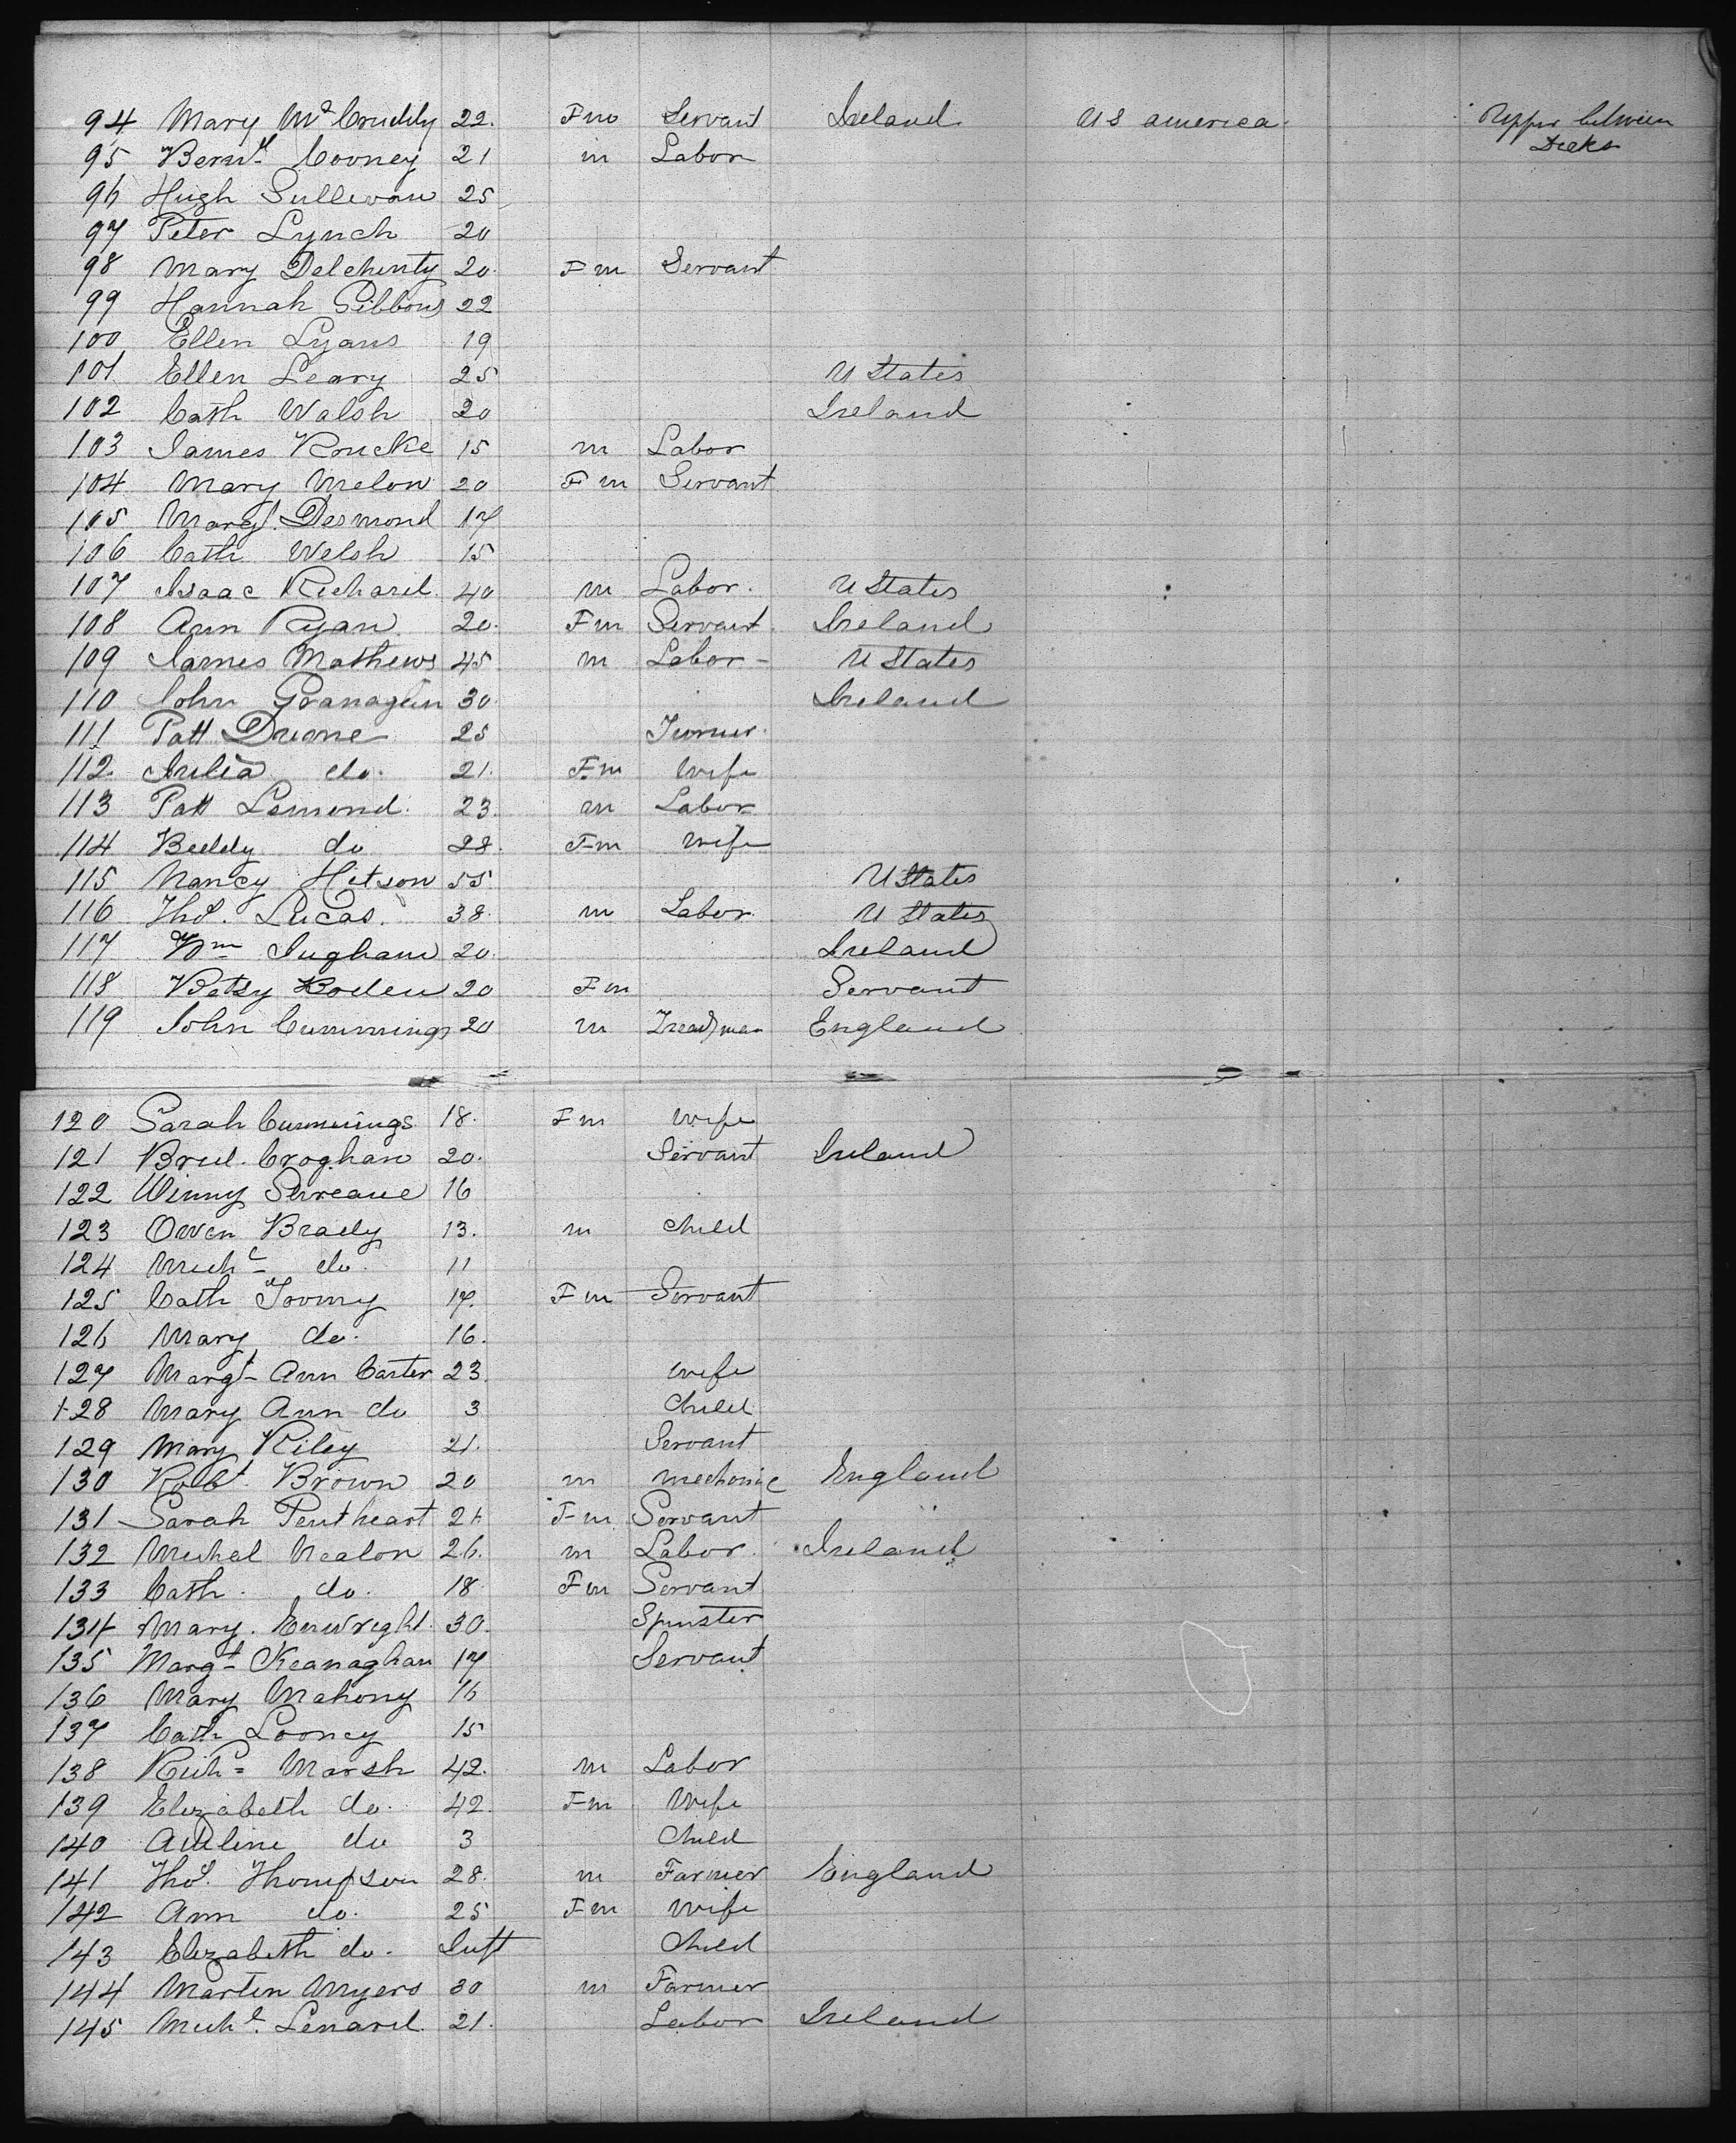 94 Mary McCruddy 22. Fm Servant Ireland US america Upper between
Decks
95 Bernd Cooney 21 m Labor
96 Hugh Sullivan 25
97 Peter Lynch 20
98 Mary Delehenty 20. Fm Servant
99 Hannah Gibbons 22
100 Ellen Lyans 19
101 Ellen Leary 25 U States
102 Cath Walsh 20 Ireland
103 James Roucke 15 m Labor
104 Mary Melon 20 Fm Servant
105 Margt. Desmond 17
106 Cath Welsh 15
107 Isaac Richard. 40 m Labor. U States
108 Ann Ryan 20. Fm Servant. Ireland
109 James Mathews 45 m Labor - U States
110 John Granaghan 30. Ireland
111 Patt Druone 25
112. Julia do. 21. Fm Wife
113 Patt Lemond. 23. m Labor
114 Biddy do 28. Fm Wife
115 Nancy Hitson 55. U States
116 Thos. Lucas. 38. m Labor. U States
117 Wm Ingham 20. Ireland
118 Betsy Boden 20 Fm Servant
119 John Cummings 20 m England
120 Sarah Cummings 18. Fm Wife
121 Brid. Croghan 20. Servant Ireland
122 Winny 16
123 Owen Brady 13. m Child
124 Michl do. 11
125 Cath Toomy 17. Fm Servant
126 Mary do. 16.
127 Margt Ann Carter 23. Wife
128 Mary Ann do 3 Child
129 Mary Riley 21. Servant
130 Robt. Brown 20 m mechanic England
131 Sarah Pentheart Fm Servant
132 Michal Nealon 26. m Labor. Ireland
133 Cath. do. 18. Fm Servant
134 Mary. Enwright. 30. Spinster
135 Margt Keanaghan 17 Servant
136 Mary Mahony 16
137 Cath Looney 15
138 Richd Marsh 42. m Labor
139 Elizabeth do. 42. Fm Wife
140 Adeline do 3 Child
141 Thos. Thompson 28. m Farmer England
142 Ann do. 25 Fm Wife
143 Elizabeth do. Inft Child
144 Martin Myers 30 m Farmer
145 Michl. Lenard. 21. Labor Ireland